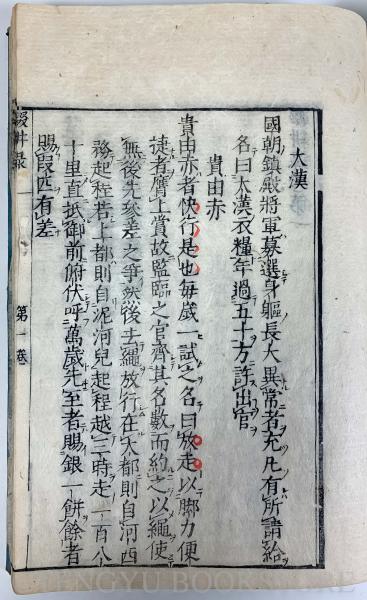 大漢
國朝鎮殿將軍募選身軀長大異常者充凡有所請給
名曰大漢衣糧年過五十方許出官
貴由赤
貴由赤者快行是也每歲一試之名曰放走以脚力便
捷者膺上賞故監臨之官齊其名數而約之以繩使
無後先參差之爭然後去繩放行在大都則自河西
務起程若上都則自泥河兒起程越三時走一百八
十里直抵御前俯伏呼萬歲先至者賜銀一餅餘者
賜段匹有差
輟耕錄
第一卷